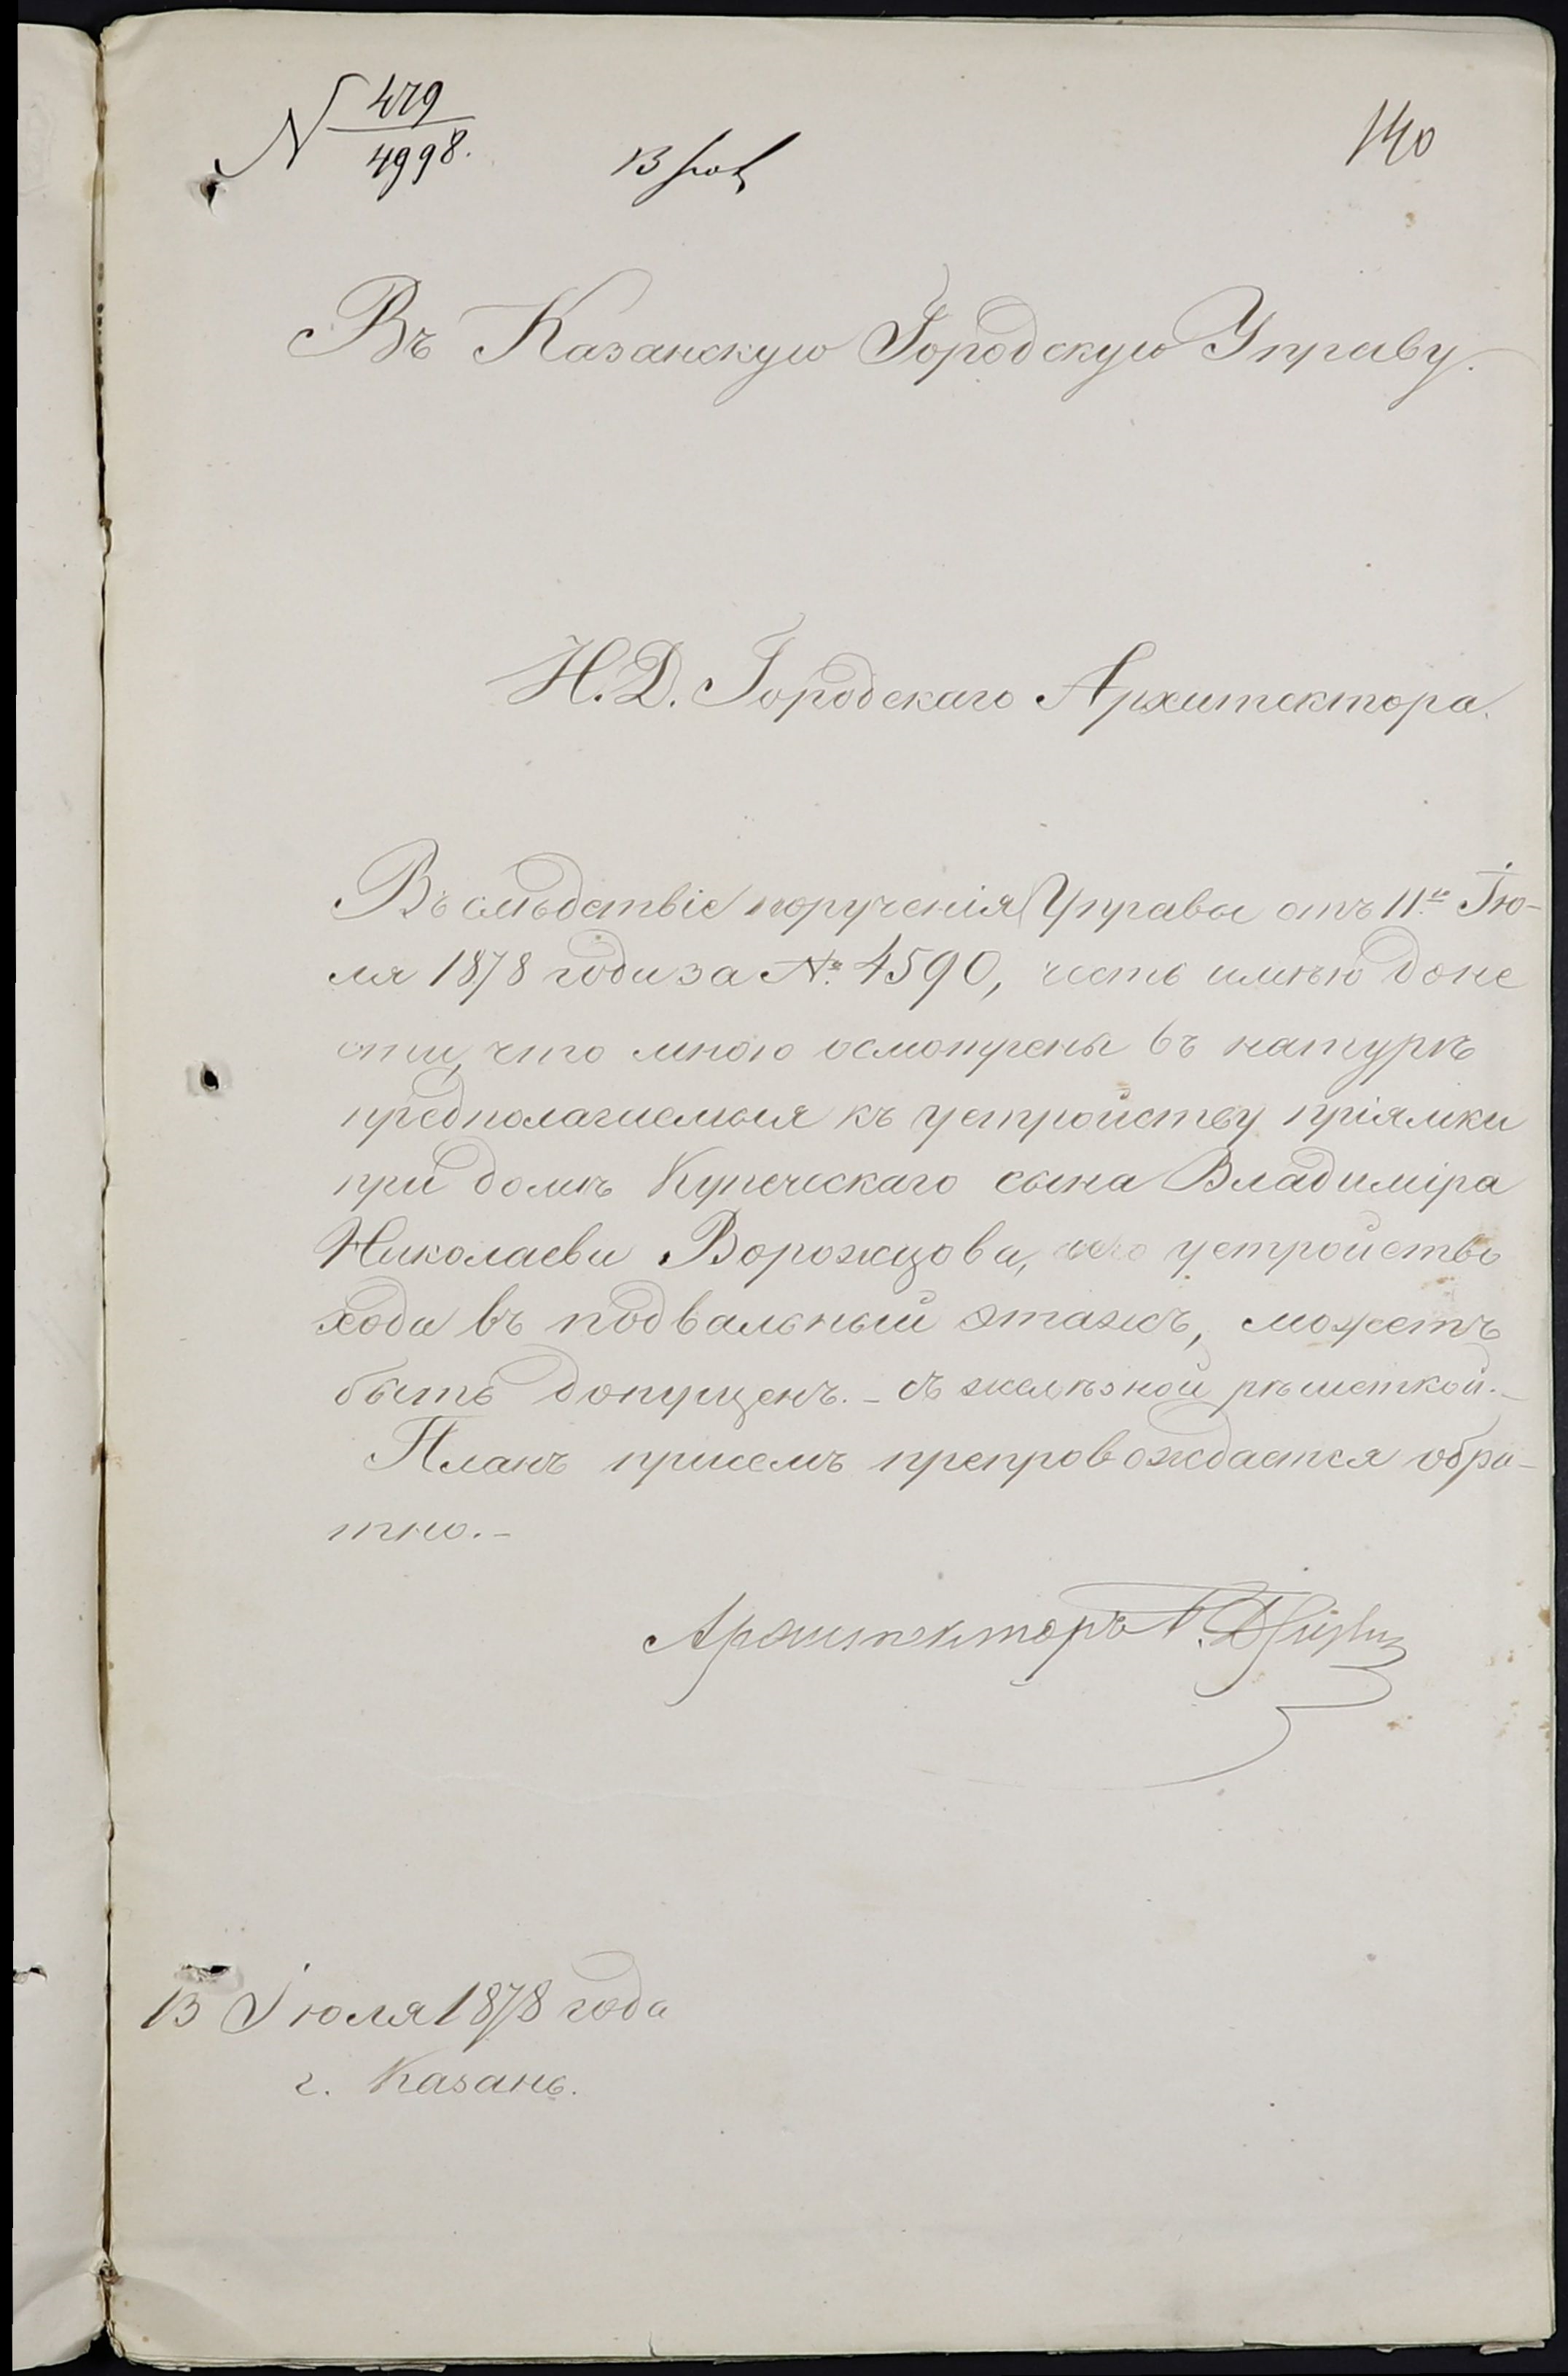 N 479
4998.
13 Іюл
140
Въ Казанскую Городскую Управу.
И.Д. Городскаго Архитектора.
Въ слѣдствіе порученія Управы отъ 11го Ію-
ля 1878 года за №. 4590, честь имѣю доне
сти, что мною осмотрены въ натурѣ
предполагаемыя къ устройству пріямки
при домѣ Купеческаго сына Владиміра
Николаева Ворожцова, устройство
хода въ подвальный этажъ, можетъ
быть допущенъ. - съ желѣзной рѣшеткой. -
Планъ присемъ препровождается обра-
тно. -
Архитекторъ
13 Іюля 1878 года
г. Казань.